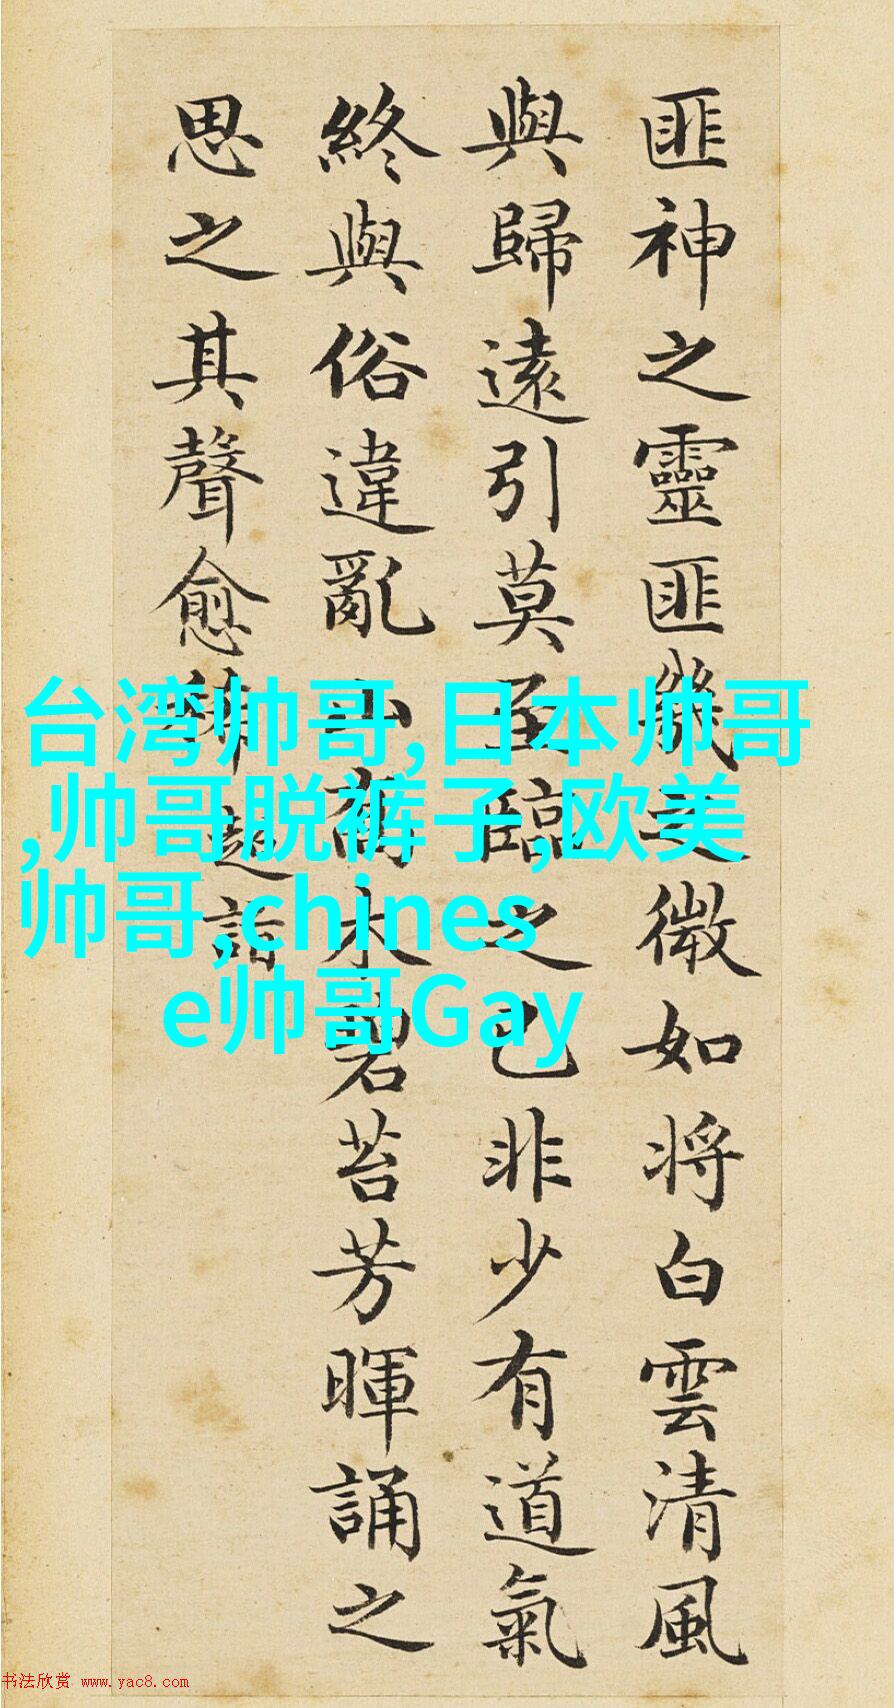 匪神之靈匪幾之微如将白雲清風
與歸遠引莫至臨之已非少有道氣
終與俗違亂山喬木碧苔芳暉誦之
思之其聲愈稀
超詣
台湾帅哥,日本帅哥
,帅哥脱裤子,欧美
帅哥,chines
e帅哥Gay
书法欣赏 www.yac8.com